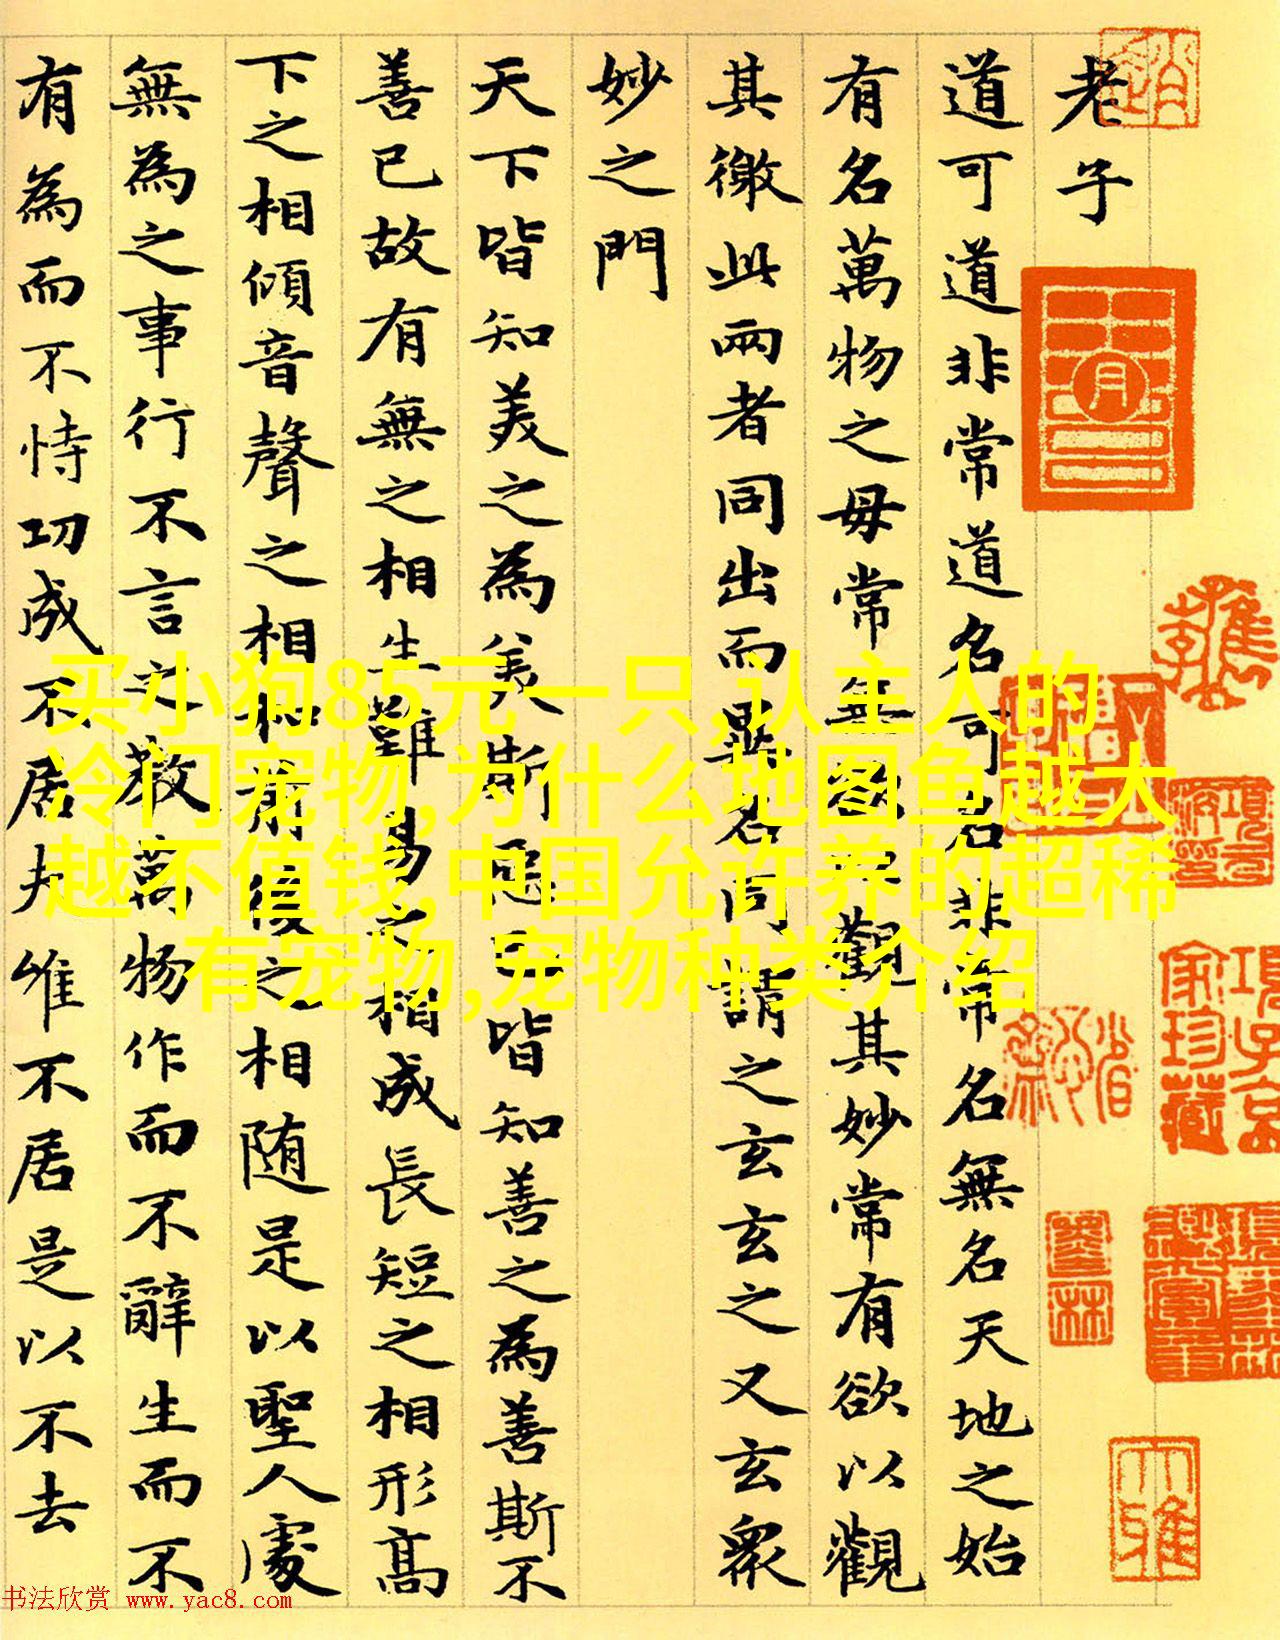 老子
道可道非常道名可名非常名無名天地之始
有名萬物之母常無欲以觀其妙常有欲以觀
其徼此兩者同出而異名同謂之玄玄之又玄衆
妙之門
天下皆知美之為美斯惡已皆知善之為善斯不
善已故有無之相生難易之相成長短之相形高
下之相傾音聲之相和前後之相随是以聖人處
無為之事行不言之教萬物作而不辭生而不
有為而不恃功成不居夫惟不居是以不去
买小狗85元一只,认主人的
冷门宠物,为什么地图鱼越大
越不值钱,中国允许养的超稀
有宠物,宠物种类介绍
书法欣赏 www.yac8.com